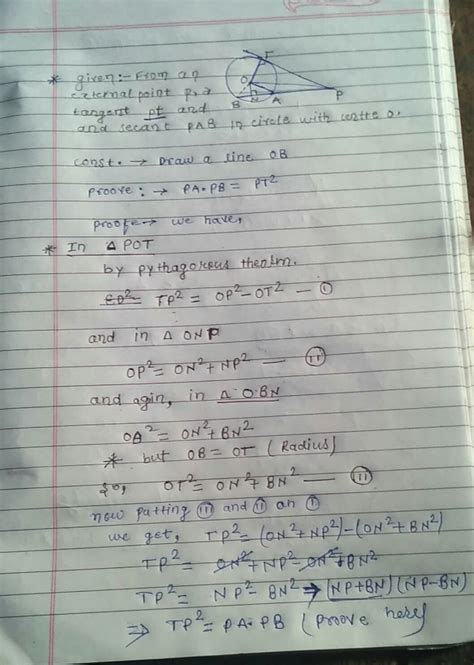 * given:- From an
external point P, a
tangent pt and
and secant PAB in circle with centre O.
T
O
B N A P
const. → Draw a line OB
Proove: → PA·PB = PT²
proofe → we have,
* In △ POT
by pythagorous theorm.
TP² = OP² - OT² — ①
and in △ ONP
OP² = ON² + NP² — ⑪
and agin, in △ OBN
OB² = ON² + BN²
* but OB = OT (Radius)
So, OT² = ON² + BN² — ⑪
now putting ⑪ and ⑪ an ①
we get, TP² = (ON² + NP²) - (ON² + BN²)
TP² = ON² + NP² - ON² + BN²
TP² = NP² - BN² ⇒ (NP+BN)(NP-BN)
⇒ TP² = PA·PB (Proove here)